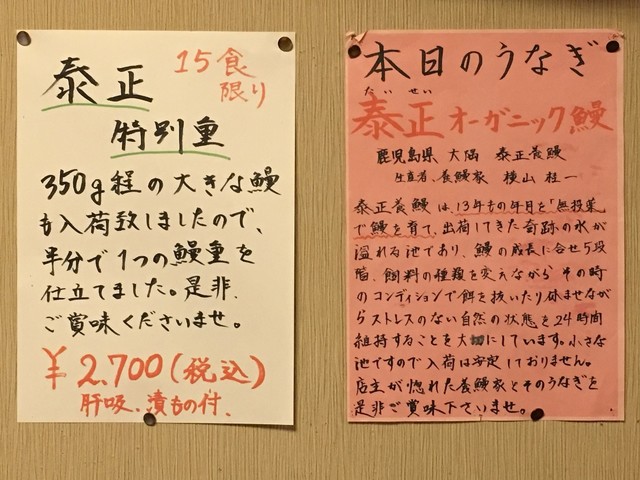 泰正
15食
限り
特別重
350g程の大きな鰻
も入荷致しましたので、
半分で1つの鰻重を
仕立てました。是非、
ご賞味くださいませ。
¥2,700(税込)
肝吸、漬もの付、
本日のうなぎ
たいせい
泰正オーガニック鰻
鹿児島県 大隅 泰正養鰻
生産者、養鰻家 横山桂一
泰正養鰻は、13年もの年月を「無投薬」
で鰻を育て、出荷してきた奇跡の水が
溢れる池であり、鰻の成長に合せ5段
階、飼料の種類を変えながら その時
のコンディションで餌を抜いたり休ませなが
らストレスのない自然の状態を24時間
維持することを大切にしています。小さな
池ですので入荷は安定しておりません。
店主が惚れた養鰻家とそのうなぎを
是非ご賞味下さいませ。